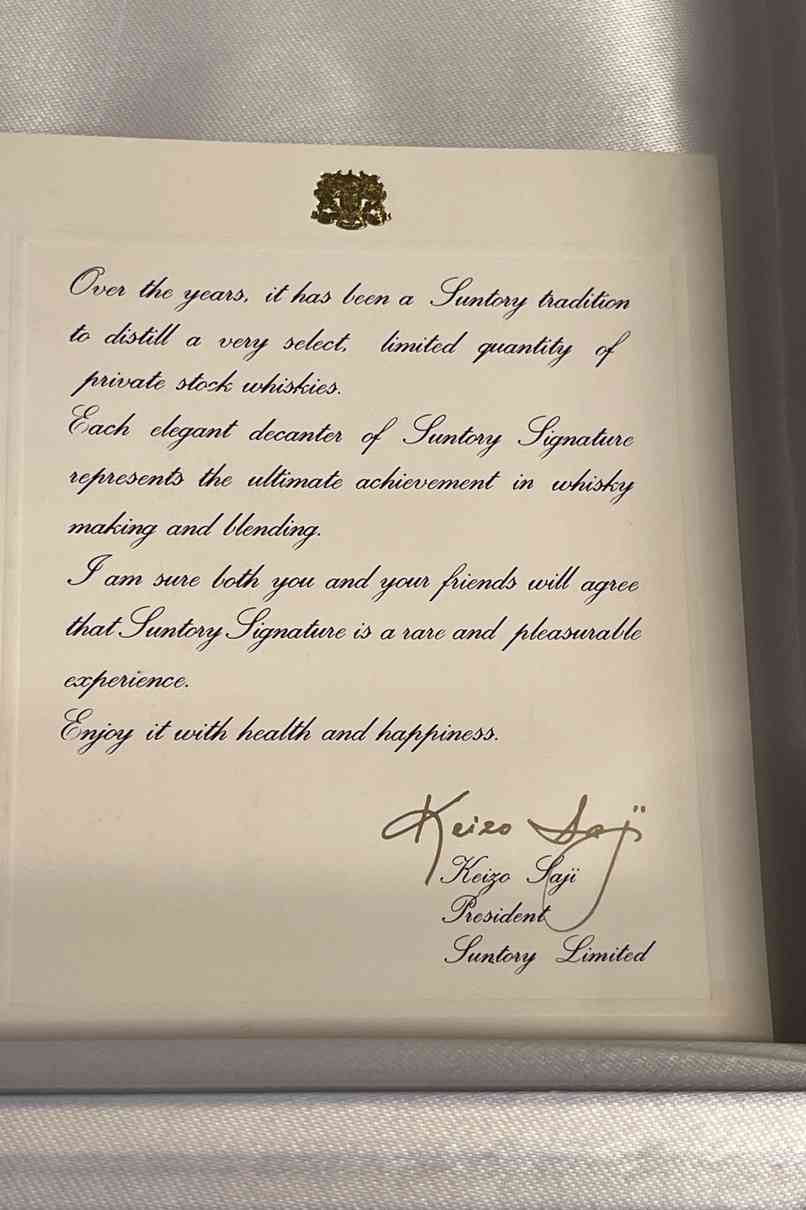 Over the years, it has been a Suntory tradition
to distill a very select, limited quantity of
private stock whiskies.
Each elegant decanter of Suntory Signature
represents the ultimate achievement in whisky
making and blending.
I am sure both you and your friends will agree
that Suntory Signature is a rare and pleasurable
experience.
Enjoy it with health and happiness.
Keizo Saji
Keizo Saji
President
Suntory Limited